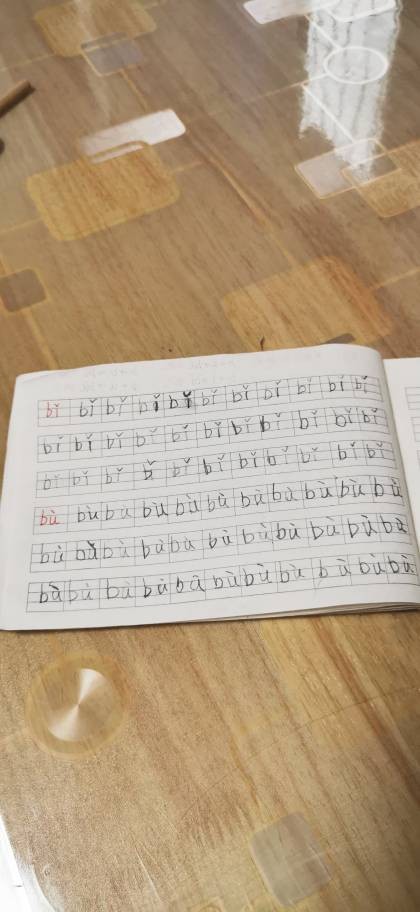 bǐ bǐ bǐ bǐ bǐ bǐ bǐ bǐ bǐ bǐ bǐ
bǐ bǐ bǐ bǐ bǐ bǐ bǐ bǐ bǐ bǐ bǐ
bǐ bǐ bǐ bǐ bǐ bǐ bǐ bǐ bǐ bǐ bǐ
bù bù bù bù bù bù bù bù bù bù bù
bù bù bù bù bù bù bù bù bù bù bù
bù bù bù bù bù bù bù bù bù bù